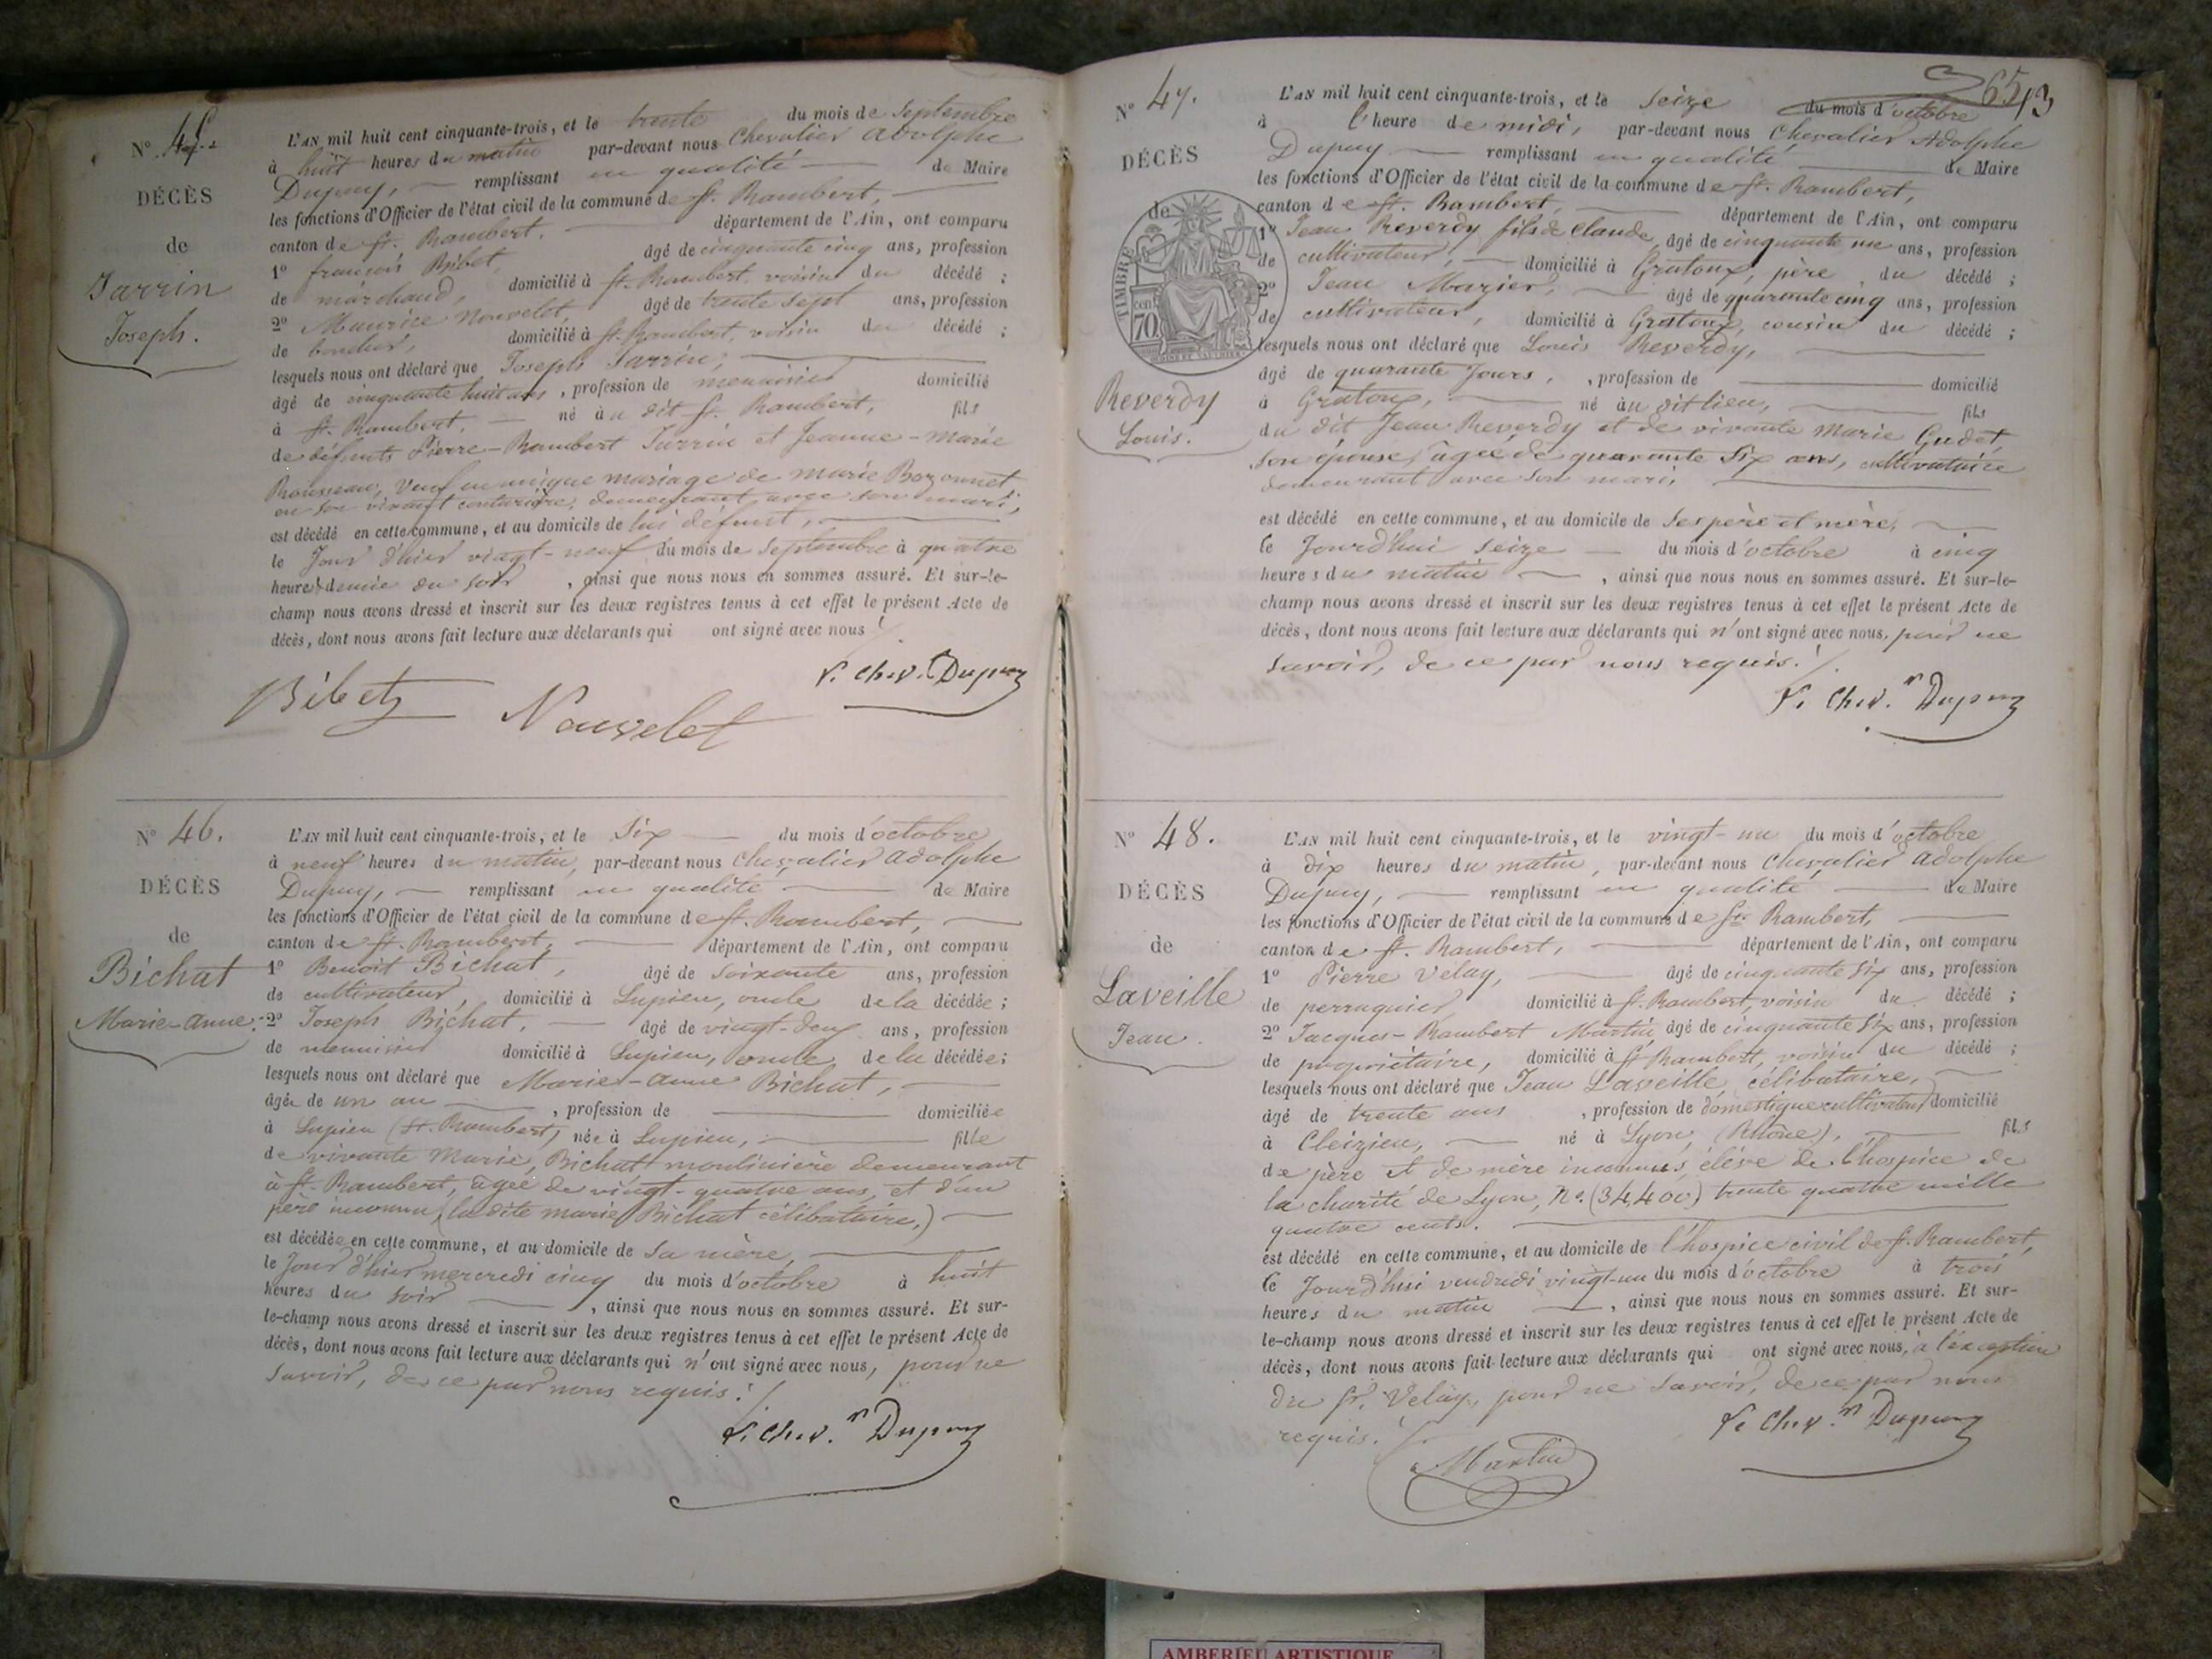 N° 45.
DÉCÈS
de
Jarrin
Joseph.
L'AN mil huit cent cinquante-trois, et le trente du mois de Septembre
à huit heures du matin par-devant nous Chevalier Adolphe
Dupuy, remplissant en qualité de Maire
les fonctions d'Officier de l'état civil de la commune de St. Rambert,
canton de St. Rambert, département de l'Ain, ont comparu
1° françois Bibet, âgé de cinquante cinq ans, profession
de marchand, domicilié à St. Rambert, voisin du décédé ;
2° Maurice Nouvelet, âgé de trente sept ans, profession
de boucher, domicilié à St. Rambert, voisin du décédé ;
lesquels nous ont déclaré que Joseph Jarrin,
âgé de cinquante huit ans, profession de menuisier domicilié
à St. Rambert, né au dit St. Rambert, fils
de défunts Pierre-Rambert Jarrin et Jeanne-Marie
Rousseau, Veuf en unique mariage de Marie Bozonnet
en son vivant couturière, demeurant avec son mari,
est décédé en cette commune, et au domicile de lui défunt,
le Jour d'hier vingt-neuf du mois de Septembre à quatre
heures & demie du soir, ainsi que nous nous en sommes assuré. Et sur-le-
champ nous avons dressé et inscrit sur les deux registres tenus à cet effet le présent Acte de
décès, dont nous avons fait lecture aux déclarants qui ont signé avec nous !
Bibet Nouvelet Chev. Dupuy
N° 46.
DÉCÈS
de
Bichat
Marie-Anne.
L'AN mil huit cent cinquante-trois, et le Six du mois d'octobre
à neuf heures du matin, par-devant nous Chevalier Adolphe
Dupuy, remplissant en qualité de Maire
les fonctions d'Officier de l'état civil de la commune de St. Rambert,
canton de St. Rambert, département de l'Ain, ont comparu
1° Benoit Bichat, âgé de soixante ans, profession
de cultivateur, domicilié à Lupieu, oncle de la décédée ;
2° Joseph Bichat, âgé de vingt-deux ans, profession
de menuisier domicilié à Lupieu, oncle de la décédée ;
lesquels nous ont déclaré que Marie-Anne Bichat,
âgée de un an, profession de domiciliée
à Lupieu (St. Rambert) née à Lupieu, fille
de vivante Marie Bichat moulinière demeurant
à St. Rambert, âgée de vingt-quatre ans, et d'un
père inconnu, (la dite marie Bichat célibataire,)
est décédée en cette commune, et au domicile de sa mère,
le Jour d'hier mercredi cinq du mois d'octobre à huit
heures du soir, ainsi que nous nous en sommes assuré. Et sur-
le-champ nous avons dressé et inscrit sur les deux registres tenus à cet effet le présent Acte de
décès, dont nous avons fait lecture aux déclarants qui n'ont signé avec nous, pour ne
savoir, de ce par nous requis !
Chev. Dupuy
65
N° 47.
DÉCÈS
de
TIMBRE
70 cen
Reverdy
Louis.
L'AN mil huit cent cinquante-trois, et le seize du mois d'octobre
à l'heure de midi, par-devant nous Chevalier Adolphe
Dupuy remplissant en qualité de Maire
les fonctions d'Officier de l'état civil de la commune de St. Rambert,
canton de St. Rambert, département de l'Ain, ont comparu
1° Jean Reverdy fils de Claude, âgé de cinquante un ans, profession
de cultivateur, domicilié à Gratoux, père du décédé ;
2° Jean Mazier, âgé de quarante cinq ans, profession
de cultivateur, domicilié à Gratoux, cousin du décédé ;
lesquels nous ont déclaré que Louis Reverdy,
âgé de quarante Jours, profession de domicilié
à Gratoux, né au dit lieu, fils
du dit Jean Reverdy et de vivante Marie Gudet,
son épouse, âgée de quarante Six ans, cultivatrice
demeurant avec son mari,
est décédé en cette commune, et au domicile de ses père et mère,
le Jourd'hui seize du mois d'octobre à cinq
heures du matin, ainsi que nous nous en sommes assuré. Et sur-le-
champ nous avons dressé et inscrit sur les deux registres tenus à cet effet le présent Acte de
décès, dont nous avons fait lecture aux déclarants qui n'ont signé avec nous, pour ne
savoir, de ce par nous requis !
Chev. Dupuy
N° 48.
DÉCÈS
de
Laveille
Jean.
L'AN mil huit cent cinquante-trois, et le vingt-un du mois d'octobre
à dix heures du matin, par-devant nous Chevalier Adolphe
Dupuy, remplissant en qualité de Maire
les fonctions d'Officier de l'état civil de la commune de St. Rambert,
canton de St. Rambert, département de l'Ain, ont comparu
1° Pierre Velay, âgé de cinquante six ans, profession
de perruquier domicilié à St. Rambert, voisin du décédé ;
2° Jacques-Rambert Martin, âgé de cinquante six ans, profession
de propriétaire, domicilié à St. Rambert, voisin du décédé ;
lesquels nous ont déclaré que Jean Laveille, célibataire,
âgé de trente ans, profession de domestique cultivateur domicilié
à Cleizieu, né à Lyon, (Rhône), fils
de père et de mère inconnus, élève de l'hospice de
la charité de Lyon, N°. (34,400) trente quatre mille
quatre cents.
est décédé en cette commune, et au domicile de l'hospice civil de St. Rambert,
le Jourd'hui vendredi vingt-un du mois d'octobre à trois
heures du matin, ainsi que nous nous en sommes assuré. Et sur-
le-champ nous avons dressé et inscrit sur les deux registres tenus à cet effet le présent Acte de
décès, dont nous avons fait lecture aux déclarants qui ont signé avec nous, à l'exception
du Sr. Velay, pour ne savoir, de ce par nous
requis !
Martin Chev. Dupuy
AMBERIEU ARTISTIQUE